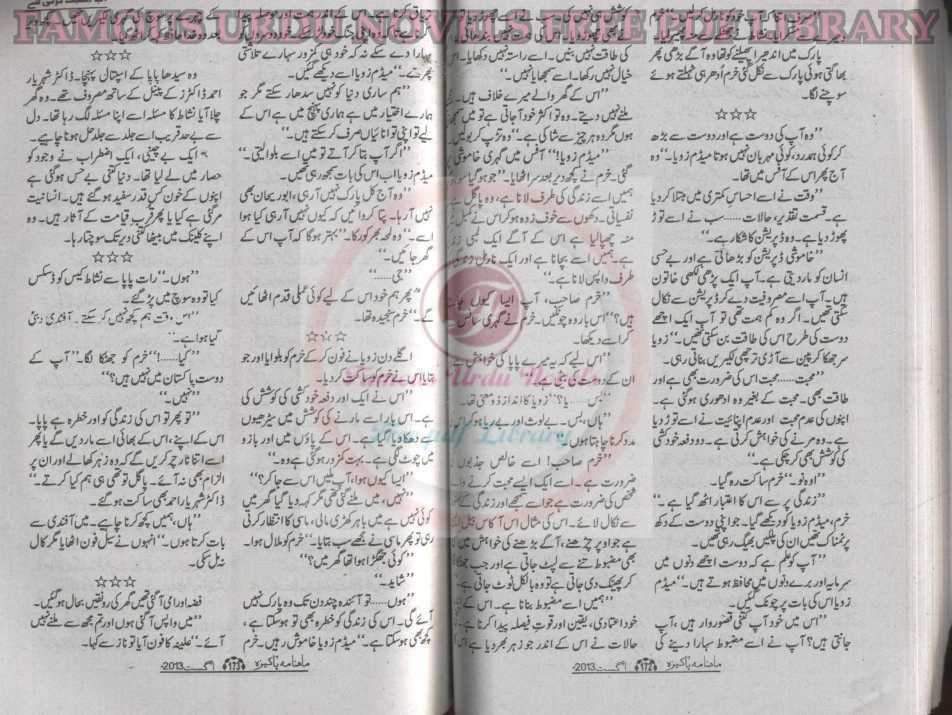 FAMOUS URDU NOVELS FREE PDF LIBRARY
پارک میں اندھیرا پھیلنے کو تھا وہ آگے بڑھی پھر
بھاگتی ہوئی پارک سے نکل گئی خرم اُدھر ہی ٹہلتے ہوئے
سوچنے لگا۔
☆☆☆
”وہ آپ کی دوست ہے اور دوست سے بڑھ
کر کوئی ہمدرد، کوئی مہربان نہیں ہوتا میڈم زویا۔“ وہ
آج پھر اس کے آفس میں تھا۔
”وقت نے اسے احساس کمتری میں مبتلا کر دیا
ہے۔ قسمت تقدیر، حالات...... سب نے اسے توڑ
پھوڑ دیا ہے۔ وہ ڈپریشن کا شکار ہے۔“
”خاموشی ڈپریشن کو بڑھاتی ہے اور بے حسی
انسان کو مار دیتی ہے۔ آپ ایک پڑھی لکھی خاتون
ہیں۔ آپ اسے مصروفیت دے کر ڈپریشن سے نکال
سکتی تھیں۔ اگر وہ کم ہمت تھی تو آپ ایک اچھے
دوست کی طرح اس کی طاقت بن سکتی تھیں۔“ زویا
سر جھکا کر پین سے آڑی ترچھی لکیریں بناتی رہی۔
”محبت...... محبت اس کی ضرورت بھی ہے اور
طاقت بھی۔ محبت کے بغیر وہ ادھوری ہوگئی ہے۔
اپنوں کی عدم محبت اور عدم اپنائیت نے اسے توڑ دیا
ہے۔ وہ مرنے کی خواہش کرتی ہے۔ دو دفعہ خودکشی
کی کوشش بھی کر چکی ہے۔“
”اوہ نو۔“ خرم ساکت رہ گیا۔
”زندگی پر سے اس کا اعتبار اٹھ گیا ہے۔
خرم، میڈم زویا کو دیکھے گیا۔ جو اپنی دوست کے دکھ
پر نمناک تھیں ان کی پلکیں بھیگ رہی تھیں۔
”آپ کو علم ہے کہ دوست اچھے دنوں میں
سرمایہ اور برے دنوں میں محافظ ہوتے ہیں۔“ میڈم
زویا اس کی بات پر چونک گئیں۔
”اس میں خود آپ کتنی قصوروار ہیں، آپ
جانتی ہیں؟ آپ نے اسے مضبوط سہارا دینے کی
کی طاقت نہیں بنیں۔ اسے راستہ نہیں دکھایا۔ اس
خیال نہیں رکھا۔ اسے سمجھایا نہیں۔“
”اس کے گھر والے میرے خلاف ہیں۔
ملنے نہیں دیتے۔ وہ تو اکثر خود آ جاتی ہے تو میں سمجھ
ہوں مگر وہ ہر چیز سے شاکی ہے۔“ وہ تڑپ کر بولیں۔
”میڈم زویا!“ آفس میں گہری خاموشی
گئی۔ خرم نے کچھ دیر بعد سر اٹھایا۔ ”جو ہو گیا سو
ہمیں اسے زندگی کی طرف لانا ہے، وہ پاگل
نفسیاتی۔ دکھوں سے خوف زدہ ہو کر اس نے
منہ چھپا لیا ہے اس کے آگے ایک لمبی
ہے۔ ہمیں اسے بچانا ہے اور ایک نارمل زندگی
طرف واپس لانا ہے۔“
”خرم صاحب، آپ ایسا کیوں
ہیں؟“ اس بار وہ چونکیں۔ خرم نے گہری سانس
کر اسے دیکھا۔
”اس لیے کہ یہ میرے پاپا کی خواہش ہے
ان کے دوست کی بیٹی ہے۔“
”بس...... یا؟“ زویا کا انداز ذومعنی تھا۔
”ہاں، بس۔ بے لوث اور بے ریا ہو کر
مدد کرنا چاہتا ہوں۔“
”خرم صاحب! اسے خالص جذبوں
ضرورت ہے۔ اسے ایک ایسے محبت کرنے والے
شخص کی ضرورت ہے جو اسے سمجھے اور زندگی کے
سے نکال لائے۔ اس کی مثال اس آکاس بیل
ہے جو اوپر چڑھنے، آگے بڑھنے کی خواہش میں
بھی مضبوط تنے سے لپٹ جاتی ہے اور جب جھٹکا
کر پھینک دی جاتی ہے تو وہ بالکل ٹوٹ جاتی ہے۔“
”ہمیں اسے مضبوط بنانا ہے۔ اس کے
خود اعتمادی، یقین اور قوتِ فیصلہ پیدا کرنا ہے۔
حالات نے اس کے اندر جو زہر بھر دیا ہے
ماہنامہ پاکیزہ 172 اگست 2013ء
سہارا دے سکے نہ کہ خود ہی کمزور سہارے تلاشتی
پھرے۔“ میڈم زویا اسے دیکھے گئیں۔
”ہم ساری دنیا کو نہیں سدھار سکتے مگر جو
ہمارے اختیار میں ہے ہماری پہنچ میں ہے اس کے
لیے تو اپنی توانائیاں صرف کر سکتے ہیں۔“
”اگر آپ بتا کر آتے تو میں اسے بلوا لیتی۔“
میڈم زویا اب اس کی بات سمجھ رہی تھیں۔
”وہ آج کل پارک نہیں آ رہی، ابو ریحان بھی
نہیں آ رہا۔ پتا کروایا میں کہ کیوں نہیں آ رہی کیا ہوا
اسے۔“ وہ لمحہ بھر کو رکا۔ ”بہتر ہوگا کہ آپ اس کے
گھر جائیں۔“
”جی......“
”پھر ہم خود اس کے لیے کوئی عملی قدم اٹھائیں
گے۔“ خرم سنجیدہ تھا۔
☆☆☆
اگلے دن زویا نے فون کر کے خرم کو بلوایا اور جو
بتایا اس نے خرم کو ساکت کر دیا۔
”اس نے ایک اور دفعہ خودکشی کی کوشش کی
ہے۔ اس بار اسے مارنے کی کوشش میں سیڑھیوں
سے دھکا دیا گیا ہے۔ اس کے پاؤں میں اور بازو
میں چوٹ لگی ہے۔ بہت کمزور ہوگئی ہے وہ۔“
”ایسا کیوں ہوا، آپ ملیں اس سے جا کر؟“
”نہیں، میں ملنے گئی تھی مگر کہہ دیا گیا گھر میں
کوئی نہیں ہے میں باہر کھڑی مالی، ماسی کا انتظار کرتی
رہی تو پھر ماسی نے مجھے سب بتایا۔“ خرم کو ملال ہوا۔
”کوئی جھگڑا ہوا تھا گھر میں؟“
”شاید۔“
”ہوں...... تو آئندہ چند دن تک وہ پارک نہیں
آئے گی۔ اس کی زندگی کو خطرہ بھی تو ہوسکتا ہے،
کچھ بھی ہوسکتا ہے۔“ میڈم زویا خاموش رہیں۔ خرم
☆☆☆
وہ سیدھا پاپا کے اسپتال پہنچا۔ ڈاکٹر شہریار
احمد ڈاکٹرز کے پینل کے ساتھ مصروف تھے۔ وہ گھر
چلا آیا نشاط کا مسئلہ اسے اپنا مسئلہ لگ رہا تھا۔ دل
سے بے حد قریب اسے جلد سے جلد حل ہونا چاہیے۔
ایک بے چینی، ایک اضطراب نے وجود کو
حصار میں لے لیا تھا۔ دنیا کتنی بے حس ہوگئی ہے
اپنوں کے خون کس قدر سفید ہو گئے ہیں۔ انسانیت
مرگئی ہے کیا یا پھر قربِ قیامت کے آثار ہیں۔ وہ
اپنے کلینک میں بیٹھا کتنی دیر تک سوچتا رہا۔
☆☆☆
”ہوں۔“ رات پاپا سے نشاط کیس کو ڈسکس
کیا تو وہ سوچ میں پڑ گئے۔
”اس وقت ہم کچھ نہیں کرسکتے۔ آفندی دبئی
گیا ہوا ہے۔“
”کیا......!“ خرم کو جھٹکا لگا۔ ”آپ کے
دوست پاکستان میں نہیں ہیں؟“
”نہیں۔“
”تو پھر تو اس کی زندگی کو اور خطرہ ہے پاپا۔
اس کے اپنے، اس کے بھائی اسے مار دیں گے یا پھر
اسے اتنا ٹارچر کریں گے کہ وہ زہر کھا لے اور ان پر
الزام بھی نہ آئے۔ پاگل تو تھی ہی ہم کیا کرتے۔“
ڈاکٹر شہریار احمد بھی ساکت ہو گئے۔
”ہاں، ہمیں کچھ کرنا چاہیے۔ میں آفندی سے
بات کرتا ہوں۔“ انہوں نے سیل فون اٹھایا مگر کال
نہ مل سکی۔
☆☆☆
فضہ اور امی آ گئی تھیں گھر کی رونقیں بحال ہو گئیں۔
”میں واپس آ گئی ہوں اور تم مجھ سے ملنے نہیں
آئے۔“ علینہ کا فون آیا تو ناز سے کہا۔
ماہنامہ پاکیزہ 173 اگست 2013ء
Famous Urdu Novels
Free pdf Library